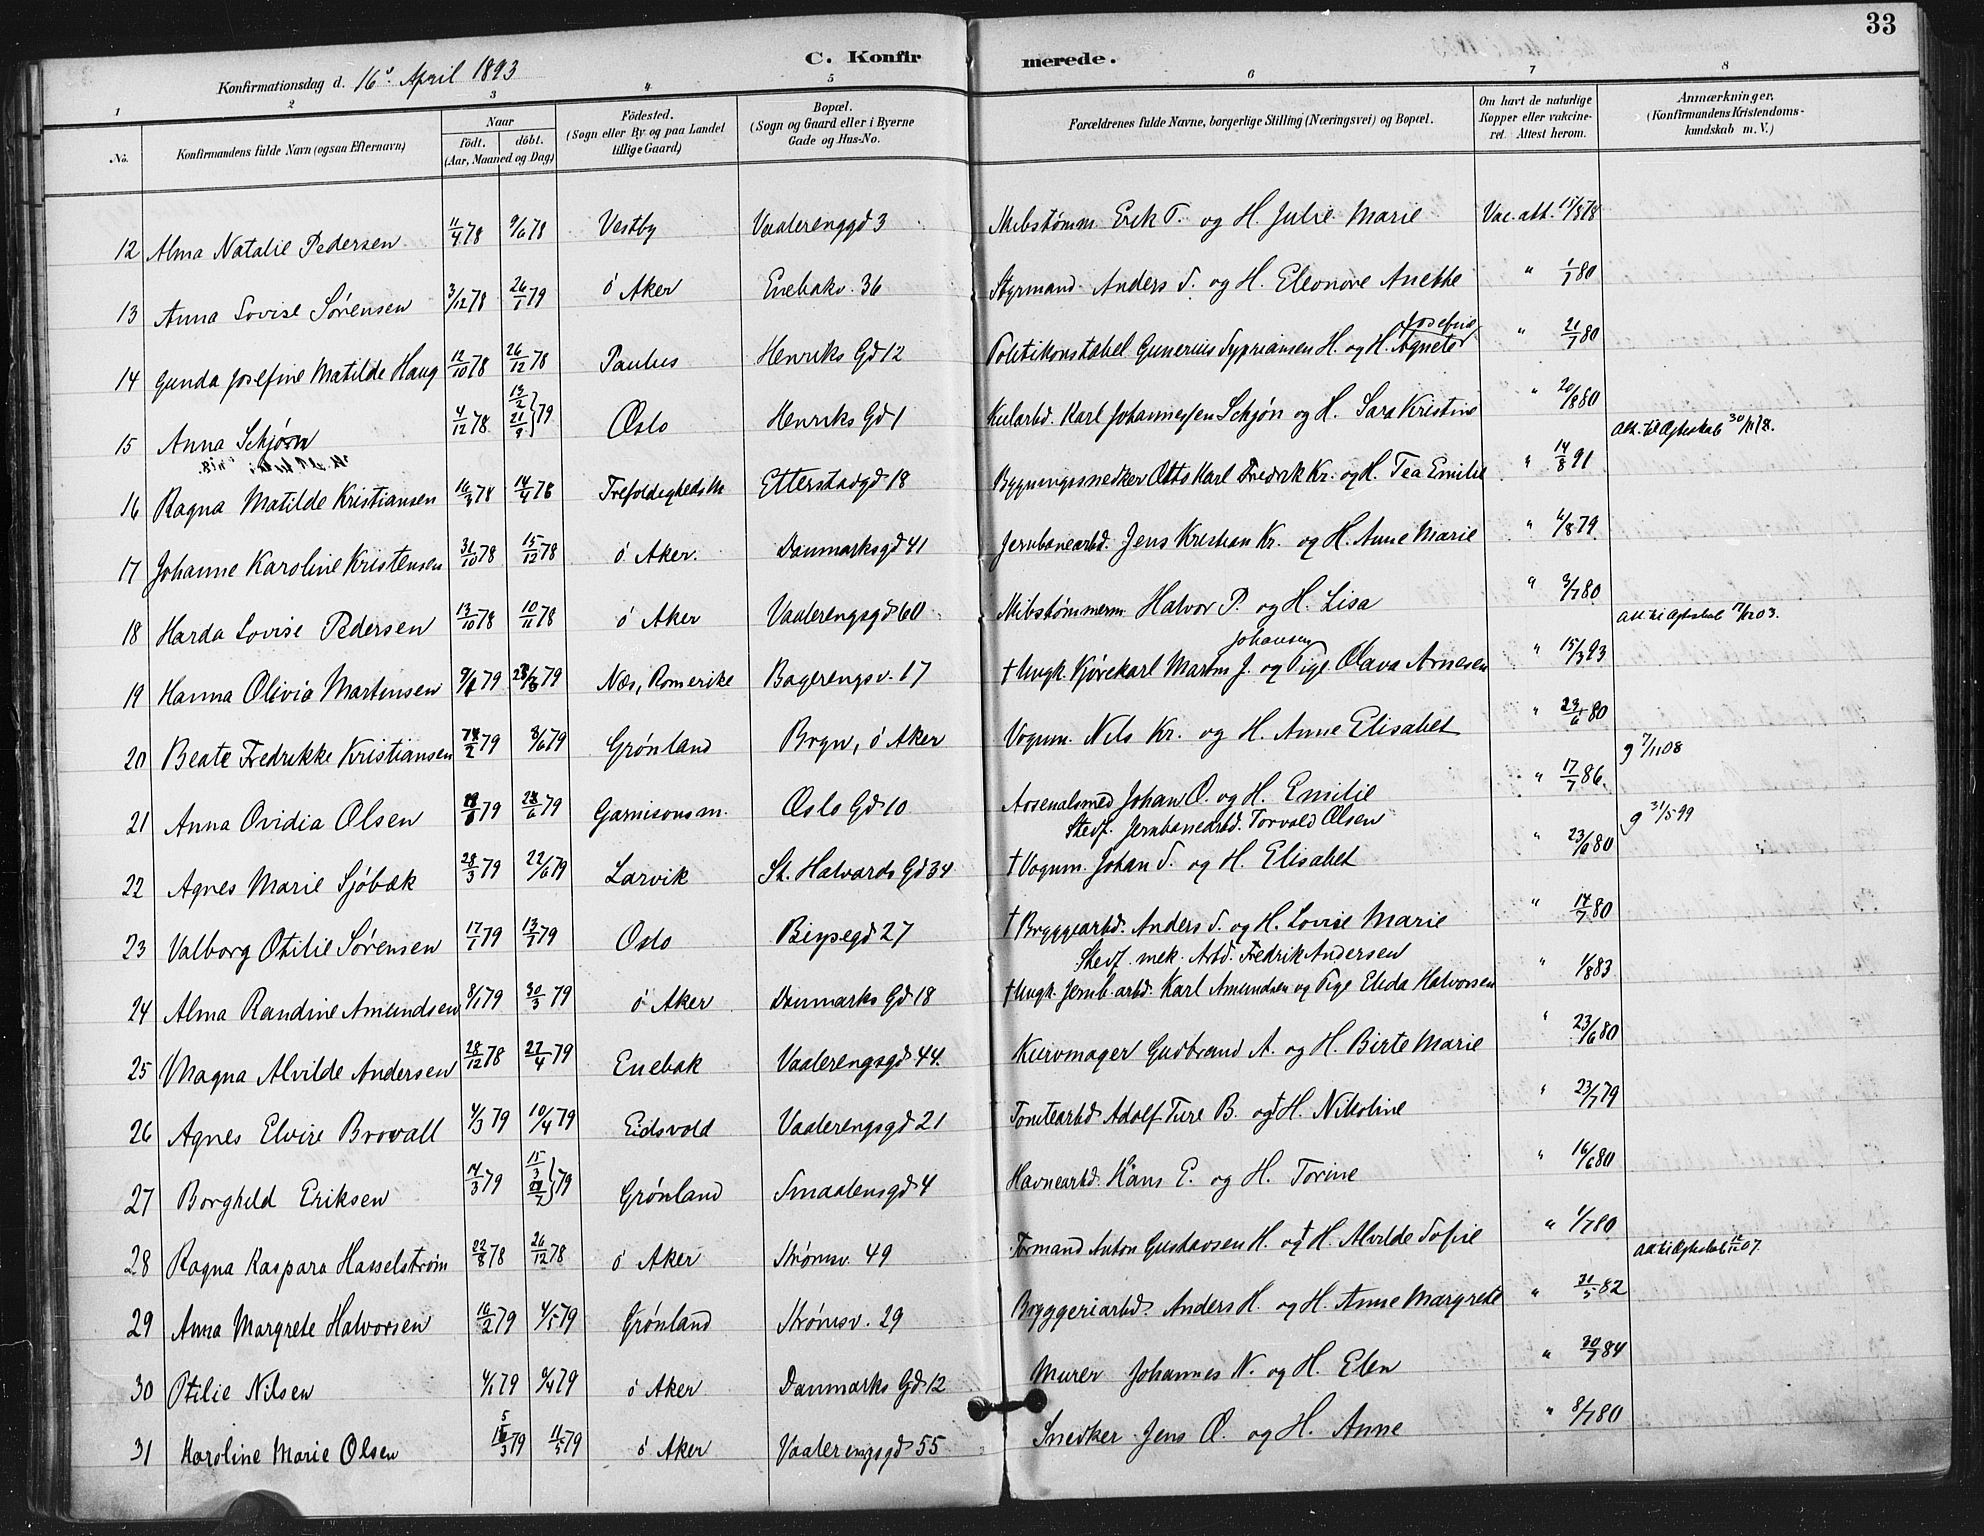 33
C. Konfirmerede.
Konfirmationsdag d. 16d. April 1893
1 2 3 4 5 6 7 8
No. Konfirmandens fulde Navn (ogsaa Efternavn) Naar født. døbt. (Aar, Maaned og Dag) Fødested. (Sogn eller By og paa Landet tillige Gaard) Bopæl. (Sogn og Gaard eller i Byerne Gade og Hus-No. Forældrenes fulde Navne, borgerlige Stilling (Næringsvei) og Bopæl. Om havt de naturlige Kopper eller vaccineret. Attest herom. Anmærkninger. (Konfirmandens Kristendomskundskab m. V.)
12 Alma Natalie Pedersen 11/4 78 9/6 78 Vestby Vaalerenggd 3 Mibstømm. Erik P. og H. Julie Marie Vac. att. 78
13 Anna Lovise Sørensen 3/12 78 26/1 79 ø Aker Enebakv. 36 Styrmand Anders S. og H. Eleonore Anette " 1/7 80
14 Gunda Josefine Matilde Haug 12/10 78 26/12 78 Paulus Henriks Gd 12 Politikonstabel Gunerius Sypriansen H. og H. Agnete Josefine " 21/7 80
15 Anna Schjøn 4/12 78 13/2 21/9 } 79 Oslo Henriks Gd 1 Kularbd. Karl Johannessen Schjøn og H. Sara Kristine " 20/8 80 att. til Ægteskab 30/11 18.
16 Ragna Matilde Kristiansen 16/3 78 14/4 78 Trefoldigheds M Etterstadgd 18 Bygningssnedker Otto Karl Fredrik Kr. og H. Tea Emilie " 14/8 91
17 Johanne Karoline Kristensen 31/10 78 15/12 78 ø Aker. Danmarksgd 41 Jernbanearbd. Jens Kristian Kr. og H. Anne Marie " 6/8 79
18 Harda Lovise Pedersen 13/10 78 10/11 78 ø Aker Vaalerengsgd 60 Mibstømmerm. Halvor P. og H. Lisa " 9/7 80 att til Ægteskab 03.
19 Hanna Olivia Martinsen 79 79 Næs, Romerike Bagerengsv. 17 † Ungk. Kjørekarl Martin J. Johansen og Pige Olava Arnesen " 15/3 93
20 Beate Fredrikke Kristiansen 79 8/6 79 Grønland Bryn, ø Aker Vognm. Nils Kr. og H. Anne Elisabet " 23/6 80
21 Anna Ovidia Olsen 79 79 Garnisonsm. Oslo Gd 10 Arsenalsmed Johan O. og H. Emilie " 17/7 86. g 7/11 08
22 Agnes Marie Sjøbæk 28/3 79 22/6 79 Larvik St. Halvards Gd 34 † Vognm. Johan S. og H. Elisabet Stedf. Jernbanearbd. Torvald Olsen " 23/6 80 g 31/5 99
23 Valborg Otilie Sørensen 17/1 79 13/7 79 Oslo Bispegd 27 † Bryggearbd. Anders S. og H. Lovise Marie " 14/7 80
Stedf. mek. Arbd. Fredrik Andersen
24 Alma Randine Amundsen 8/1 79 30/3 79 ø Aker Danmarks Gd 18 † Ungk. Jernb. arbd. Karl Amundsen og Pige Elida Halvorsen " 1/8 83
25 Magna Alvilde Andersen 28/12 78 27/4 79 Enebak Vaalerengsgd 44. Kurvmager Gudbrand A. og H. Birte Marie " 23/6 80
26 Agnes Elvire Brovall 4/3 79 10/4 79 Eidsvold Vaalerengsgd 21 Tomtearbd Adolf Ture B. og † H. Nikoline " 23/7 79
27 Borghild Eriksen 14/3 79 79 Grønland Smaalensgd 4 Havnearbd. Hans E. og H. Torine " 16/6 80
28 Ragna Kaspara Hasselstrøm 22/8 78 26/12 78 ø Aker Strømsv. 49 Formand Anton Gustavsen H. og † H. Alvilde Sofie " 1/7 80
29 Anna Margrete Halvorsen 16/2 79 4/5 79 Grønland Strømsv. 29 Bryggeriarbd. Anders H. og H. Anne Margrete " 31/5 82 att til Ægteskab 07.
30 Otilie Nilsen 4/1 79 9/4 79 ø Aker Danmarks Gd 12 Murer Johannes N. og H. Elen " 30/7 84
31 Karoline Marie Olsen 79 11/5 79 ø Aker Vaalerengsgd 55 Snedker Jens O. og H. Anne " 8/7 80